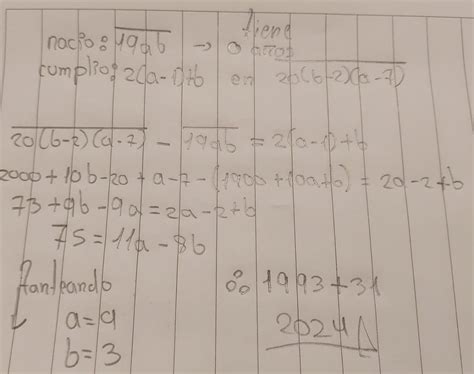 nació: 19ab → tiene 0 años
cumplió: 2(a-1)+b en 20(b-2)(a-7)
20(b-2)(a-7) - 19ab = 2(a-1)+b
2000+10b-20+a-7-(1900+10a+b) = 2a-2+b
73+9b-9a=2a-2+b
75=11a-8b
Planteando
a=9
b=3
∴ 1993+31
2024